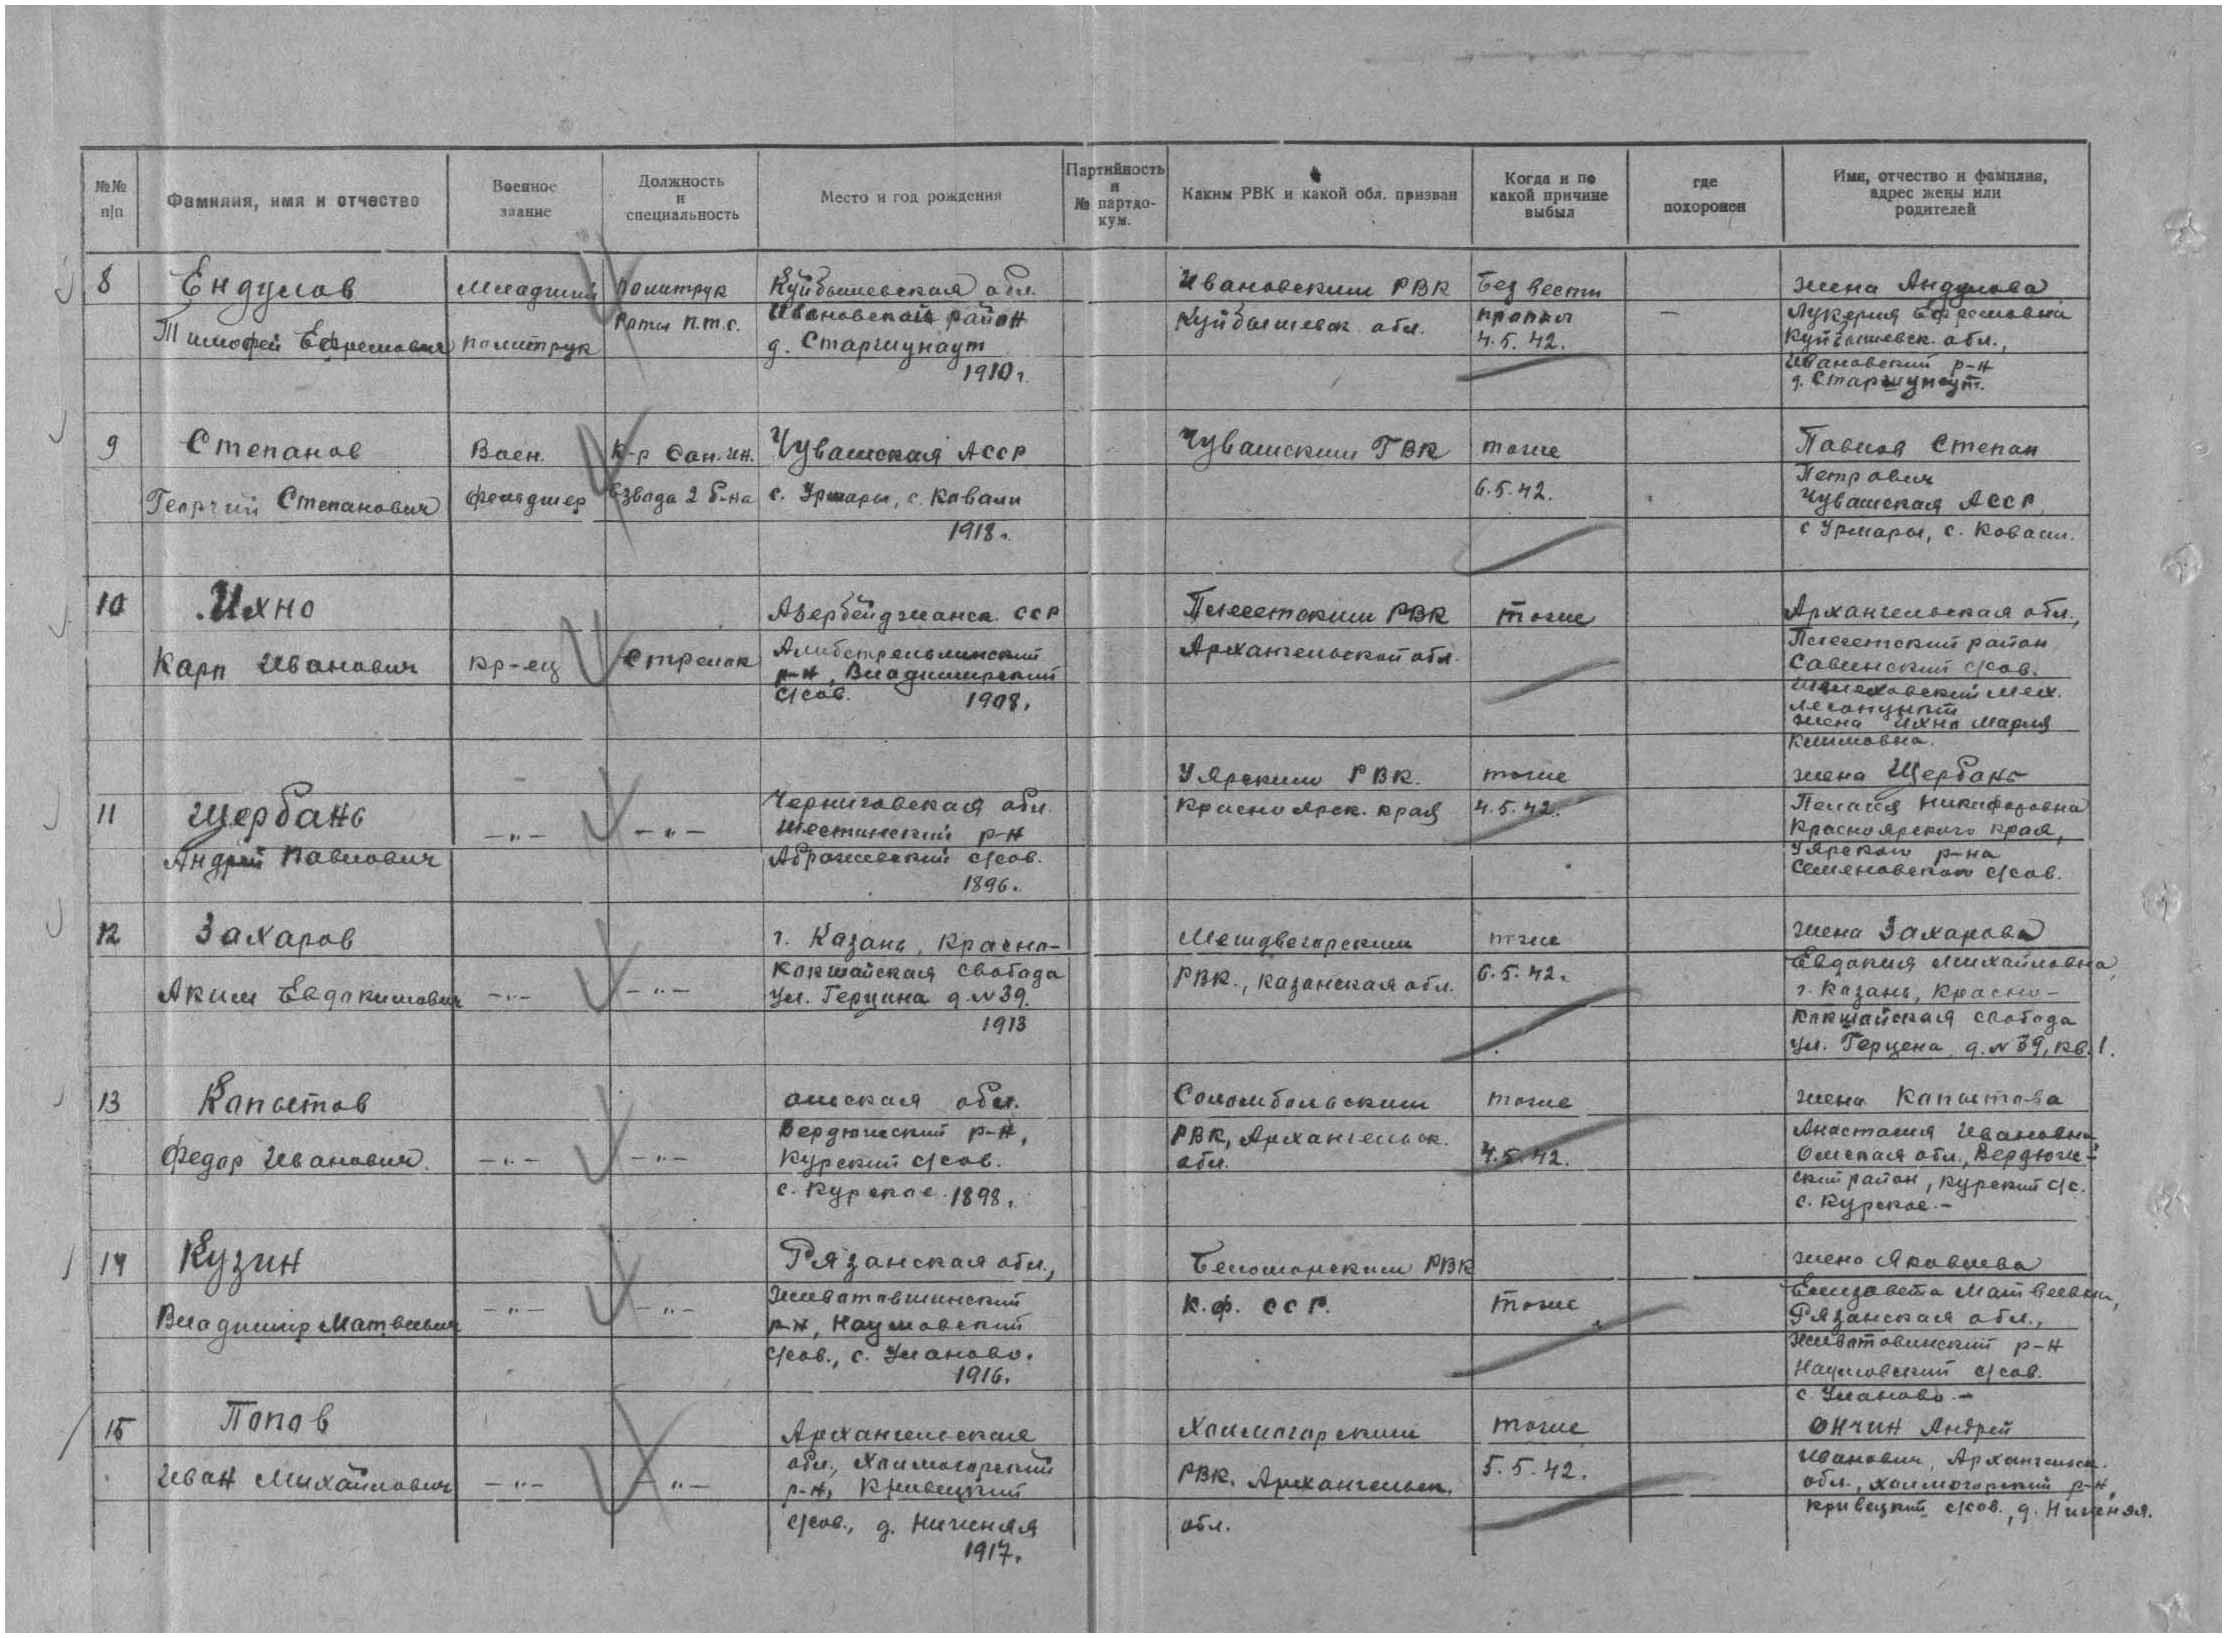 №№ п|п
Фамилия, имя и отчество
Военное звание
Должность и специальность
Место и год рождения
Партийность и № партдо-кум.
Каким РВК и какой обл. призван
Когда и по какой причине выбыл
где похоронен
Имя, отчество и фамилия, адрес жены или родителей
8
Ендулов
Тимофей Ефремович
Младший
политрук
Политрук
Роты п.т.с.
Куйбышевская обл.
Ивановский район
д. Старшунаут
1910г.
Ивановским РВК
Куйбышевск. обл.
Без вести
пропал
4.5.42.
—
жена Андулова
Лукерия Ефремовна
Куйбышевск. обл.,
Ивановский р-н
д. Старшунаут.
9
Степанов
Георгий Степанович
Воен.
фельдшер
К-р Сан.
взвода 2 б-на
Чувашская АССР
с. Урмары, с. Ковали
1918г.
Чувашским ГВК
тоже
6.5.42.
Павлов Степан
Петрович
Чувашская АССР
с Урмары, с. Ковали.
10
Ихно
Карп Иванович
кр-ец
Стрелок
Азербейджанск. ССР
р-н, Владимирский
с/сов.
1908г.
Плесетским РВК
Архангельской обл.
тоже
Архангельская обл.,
Плесетский район
Савинский с/сов.
Шелеховский мех.
лесопункт
жена Ихно Мария
Климовна.
11
Щербань
Андрей Павлович
—"—
—"—
Черниговская обл.
р-н
с/сов.
1896г.
Уярским РВК.
Красноярск. края
тоже
4.5.42.
жена Щербань
Пелагея Никифоровна
Красноярского края,
Уярского р-на
Семеновского с/сов.
12
Захаров
Аким Евдокимович
—"—
—"—
г. Казань, Красно-
Кокшайская слобода
Ул. Герцина д.№39.
1913
РВК., Казанская обл.
тоже
6.5.42.
жена Захарова
Евдокия Михайловна,
г. Казань, Красно-
Кокшайская слобода
ул. Герцена д.№39, кв.1.
13
Копытов
Федор Иванович.
—"—
—"—
омская обл.
Бердюжский р-н,
Курский с/сов.
с. Курское. 1898г.
Соломбальским
РВК, Архангельск.
обл.
тоже
4.5.42.
жена Копытова
Анастасия Ивановна
Омская обл., Бердюж-
ский район, Курский с/с.
с. Курское.-
14
Кузин
Владимир Матвеевич
—"—
—"—
Рязанская обл.,
р-н, Наумовский
с/сов., с. Уланово.
1916г.
Беломорским РВК
К.ф. ССР.
тоже
жена Яковлева
Елизавета Матвеевна,
Рязанская обл.,
р-н
Наумовский с/сов.
с. Уланово.-
15
Попов
Иван Михайлович
—"—
—"—
Архангельская
обл., Холмогорский
р-н, Кривецкий
с/сов., д. Нижняя
1917г.
Холмогорским
РВК. Архангельск.
обл.
тоже
5.5.42.
Ончин Андрей
Иванович, Архангельск.
обл., Холмогорский р-н,
Кривецкий с/сов., д. Нижняя.